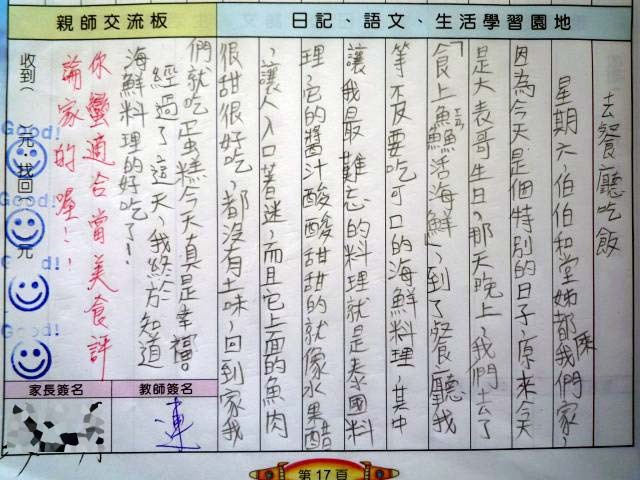 親師交流板
日記、語文、生活學習園地
去餐廳吃飯
星期六伯伯和堂姊都來我們家,
因為今天是個特別的日子,原來今天
是大表哥生日。那天晚上,我們去了
「食上鱻活海鮮」,到了餐廳我
等不及要吃可口的海鮮料理,其中
讓我最難忘的料理就是泰國料
理,它的醬汁酸酸甜甜的就像水果醋
,讓人入口著迷,而且它上面的魚肉
很甜很好吃,都沒有土味,回到家我
們就吃蛋糕今天真是幸福。
經過了這天,我終於知道
海鮮料理的好吃了!
你蠻適合當美食評
論家的喔!!
收到( )元,找回( )元
Good!
Good!
Good!
Good!
家長簽名
教師簽名
連
第17頁